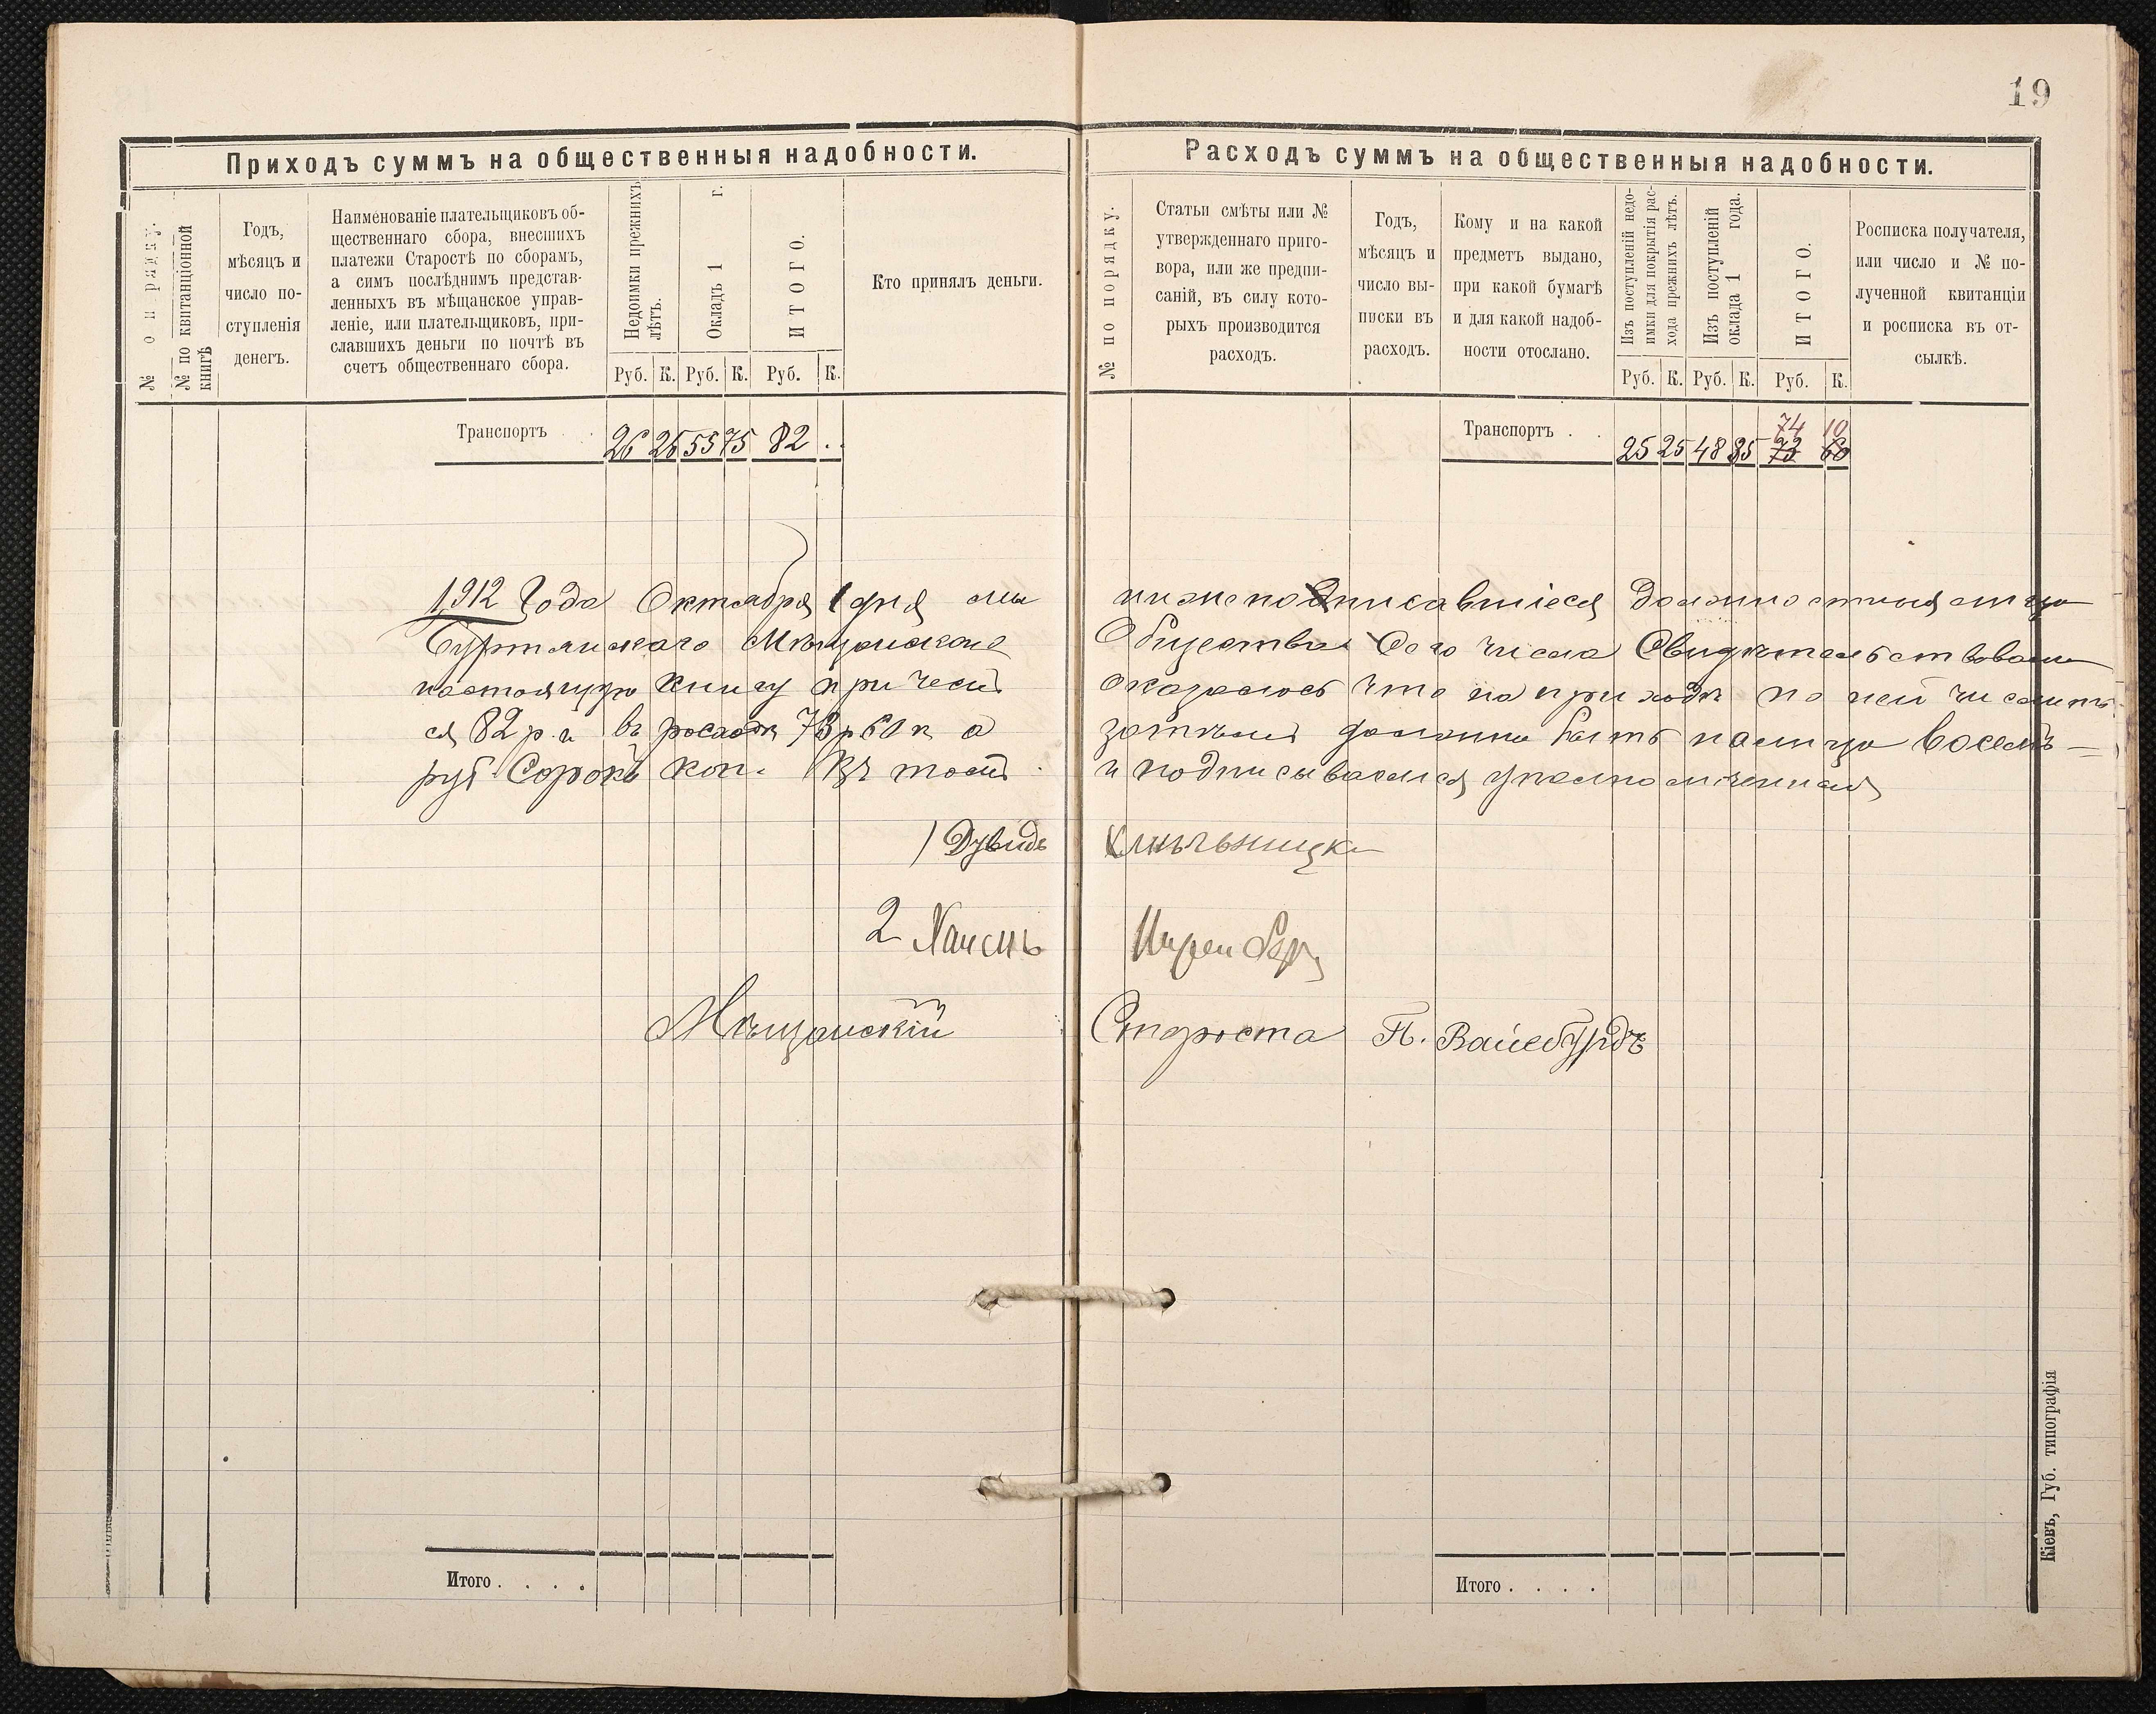 19
Приходъ суммъ на общественныя надобности.
№ по рядку.
№ по квитанціонной
книгѣ
Годъ,
мѣсяцъ и
число по-
ступленія
денегъ.
Наименованіе плательщиковъ об-
щественнаго сбора, внесшихъ
платежи Старостѣ по сборамъ,
а симъ послѣднимъ представ-
ленныхъ въ мѣщанское управ-
леніе, или плательщиковъ, при-
славшихъ деньги по почтѣ въ
счетъ общественнаго сбора.
Недоимки прежнихъ
лѣтъ.
Окладъ 1 г.
ИТОГО.
Руб. К. Руб. К. Руб. К.
Кто принялъ деньги.
Транспортъ . . 26 25 55 75 82 . .
Расходъ суммъ на общественныя надобности.
№ по порядку.
Статьи смѣты или №
утвержденнаго приго-
вора, или же предпи-
саній, въ силу кото-
рыхъ производится
расходъ.
Годъ,
мѣсяцъ и
число вы-
писки въ
расходъ.
Кому и на какой
предметъ выдано,
при какой бумагѣ
и для какой надоб-
ности отослано.
Изъ поступленій недо-
имки для покрытія рас-
хода прежнихъ лѣтъ.
Изъ поступленій
оклада 1 года.
ИТОГО.
Руб. К. Руб. К. Руб. К.
Росписка получателя,
или число и № по-
лученной квитанціи
и росписка въ от-
сылкѣ.
74 10
Транспортъ . . 25 25 48 85 73 60
1912 Года Октября 1 дня мы нижеподписавшіеся Должностныя лица
Мѣщанскаго Общества Сего числа Свидѣтельствовали
настоящую книгу при чемъ оказалось что на приходѣ по ней числит
ся 82 р. и въ расходѣ 73 р 60 к а затѣмъ должно быть налицо восемь
руб. Сорокъ коп. Въ томъ и подписываемся уполномоченные
1 Дувидъ
2 Хаимъ
Мѣщанскій Староста П. Вайсбурдъ
Итого . . . .
Итого . . . .
Кіевъ, Губ. типографія